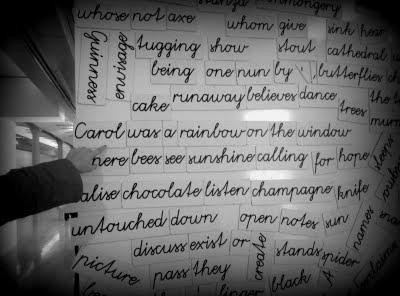 whose not axe whom give
sink hear
tugging show stout cathedral
Guinness
being one nun by butterflies
cake runaway believes dance trees the
Carol was a rainbow on the window
here bees see sunshine calling for hope
chocolate listen champagne knife
untouched down open notes sun names
discuss exist or create stands spider
picture pass they black A